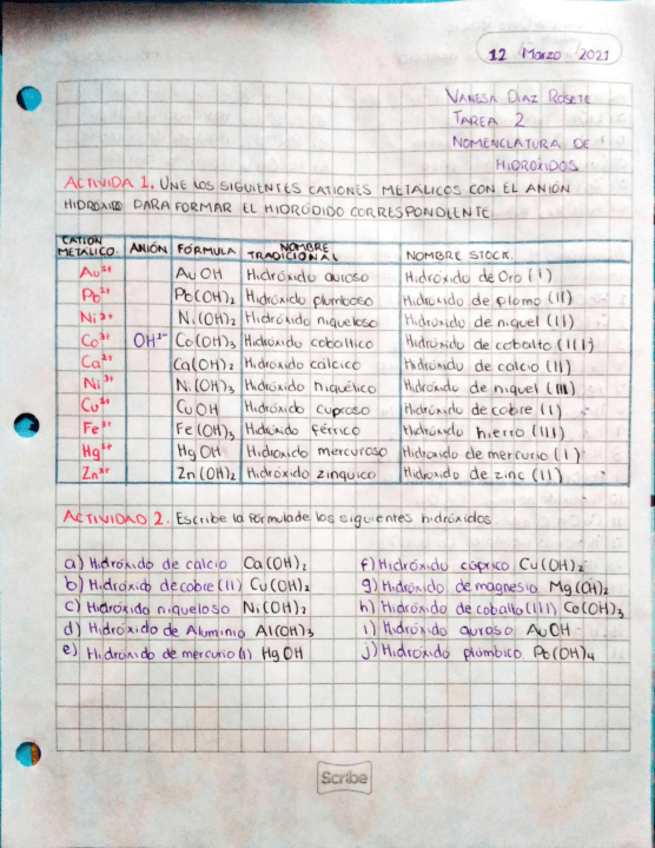 12 Marzo 2021
VANESA DIAZ ROSETE
TAREA 2
NOMENCLATURA DE
HIDROXIDOS
ACTIVIDA 1. UNE LOS SIGUIENTES CATIONES METALICOS CON EL ANIÓN
HIDROXIDO PARA FORMAR EL HIDROÓDIDO CORRESPONDIENTE.
CATION METALICO. ANIÓN FÓRMULA NOMBRE TRADICIONAL NOMBRE STOCK.
AuOH Hidróxido auroso Hidróxido de Oro (I)
Pb(OH)₂ Hidróxido plumboso Hidróxido de plomo (II)
Ni(OH)₂ Hidróxido niqueloso Hidróxido de niquel (II)
Co³⁺ OH¹⁻ Co(OH)₃ Hidróxido cobaltico Hidróxido de cobalto (III)
Ca²⁺ Ca(OH)₂ Hidróxido cálcico Hidróxido de calcio (II)
Ni³⁺ Ni(OH)₃ Hidróxido niquélico Hidróxido de niquel (III)
CuOH Hidróxido cuproso Hidróxido de cobre (I)
Fe³⁺ Fe(OH)₃ Hidróxido férrico Hidróxido hierro (III)
HgOH Hidroxido mercuroso Hidroxido de mercurio (I)
Zn(OH)₂ Hidróxido zinquico Hidroxido de zinc (II)
ACTIVIDAD 2. Escribe la fórmula de los siguientes hidróxidos.
a) Hidróxido de calcio Ca(OH)₂ f) Hidróxido cúprico Cu(OH)₂
b) Hidróxido de cobre (II) Cu(OH)₂ g) Hidróxido de magnesio Mg(OH)₂
c) Hidróxido niqueloso Ni(OH)₂ h) Hidróxido de cobalto (III) Co(OH)₃
d) Hidróxido de Aluminio Al(OH)₃ i) Hidróxido auroso AuOH
e) Hidróxido de mercurio (I) HgOH j) Hidróxido plúmbico Pb(OH)₄
Scribe